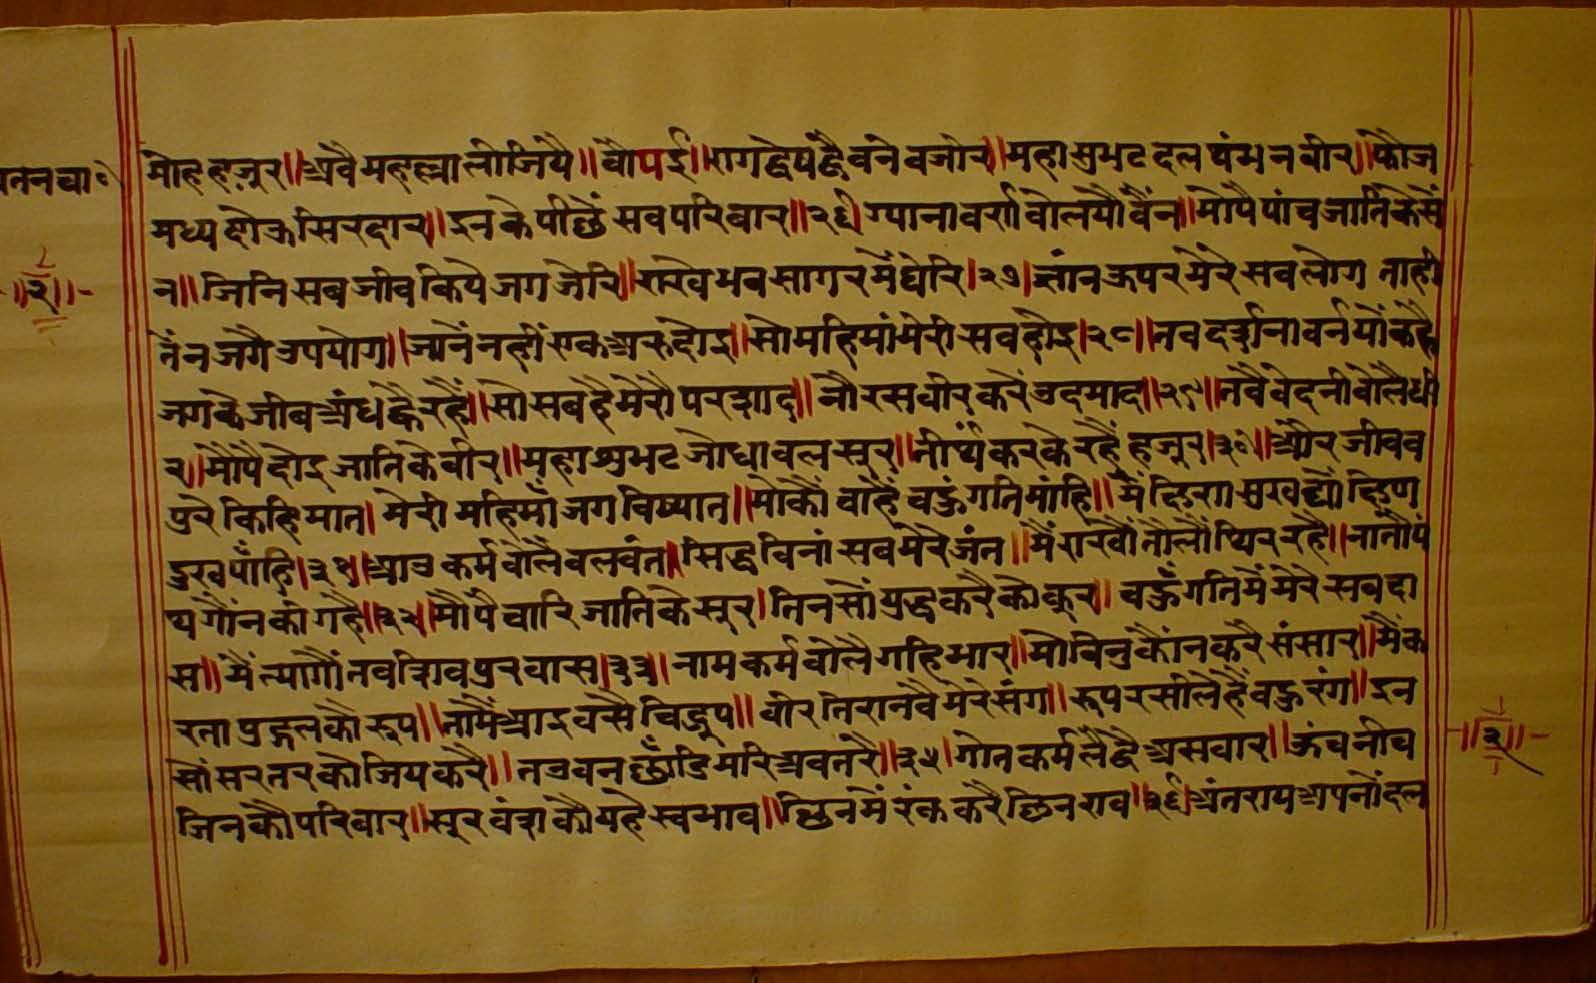 मोह हजूर॥ अवै महल्ला लीजियै॥ चौपई॥ राग द्वेष द्वै वने वजीर॥ महा सुभट दल थंभन वीर॥ फौज
मध्य दोऊ सिरदार॥ इनके पीछें सव परिवार॥२६॥ ग्यानावर्णी वोलयौ वैंन॥ मोपै पांच जाति के सें
न॥ जिनि सब जीव किये जग जेरि॥ राखे भव सागर में घेरि।२७। ग्यांन ऊपर मेरे सव लोग ताही
तें न जगै उपयोग॥ जानें नहीं एक अरु दोइ॥ सो महिमां मेरी सव होइ।२८॥ तव दर्शनावर्न यों कहै
जग के जीव अंध ह्वै रहैं॥ सो सब है मेरौ परशाद॥ नौ रस वीर करें उदमाद॥२९॥ तवै वेदनी वोलै धी
र॥ मोपै दोइ जाति के वीर॥ महा शुभट जोधा वल सूर॥ तीर्थंकर के रहैं हजूर।३०॥ और जीव व
पुरे किहि मात। मेरी महिमां जग विष्यात॥ मोकौं चाहैं चहुं गति मांहि॥ मैं छिण सुख द्यौं छिण
दुख पाँहि।३१॥ आउ कर्म वोलै वलवंत॥ सिद्ध विनां सब मेरे जंत॥ मैं राखौं तौलौं थिर रहै॥ नातौ पं
थ गौंन कौ गहै॥३२॥ मोपै चारि जाति के सूर। तिनसों युद्ध करै को कूर॥ चहुं गति में मेरे सब दा
स॥ मैं त्यागौं तव शिवपुर वास।३३॥ नाम कर्म वोलै गहि भार॥ मो विनु कौंन करै संसार॥ मैं क
रता पुद्गल कौ रूप॥ तामैं आइ वसै चिद्रूप॥ वीर तिरानवै मेरे संग॥ रूप रसीले हैं वहु रंग॥ इन
सों सरनर को जिय करै॥ तउव न छाँडि मरि अवतरै॥३५। गोत कर्म लै द्वै असवार॥ ऊंच नीच
जिनकौ परिवार॥ सूर वंश कौ यहै स्वभाव॥ छिन में रंक करै छिन राव॥३६॥ अंतराय अपनों दल
॥२॥
॥२॥